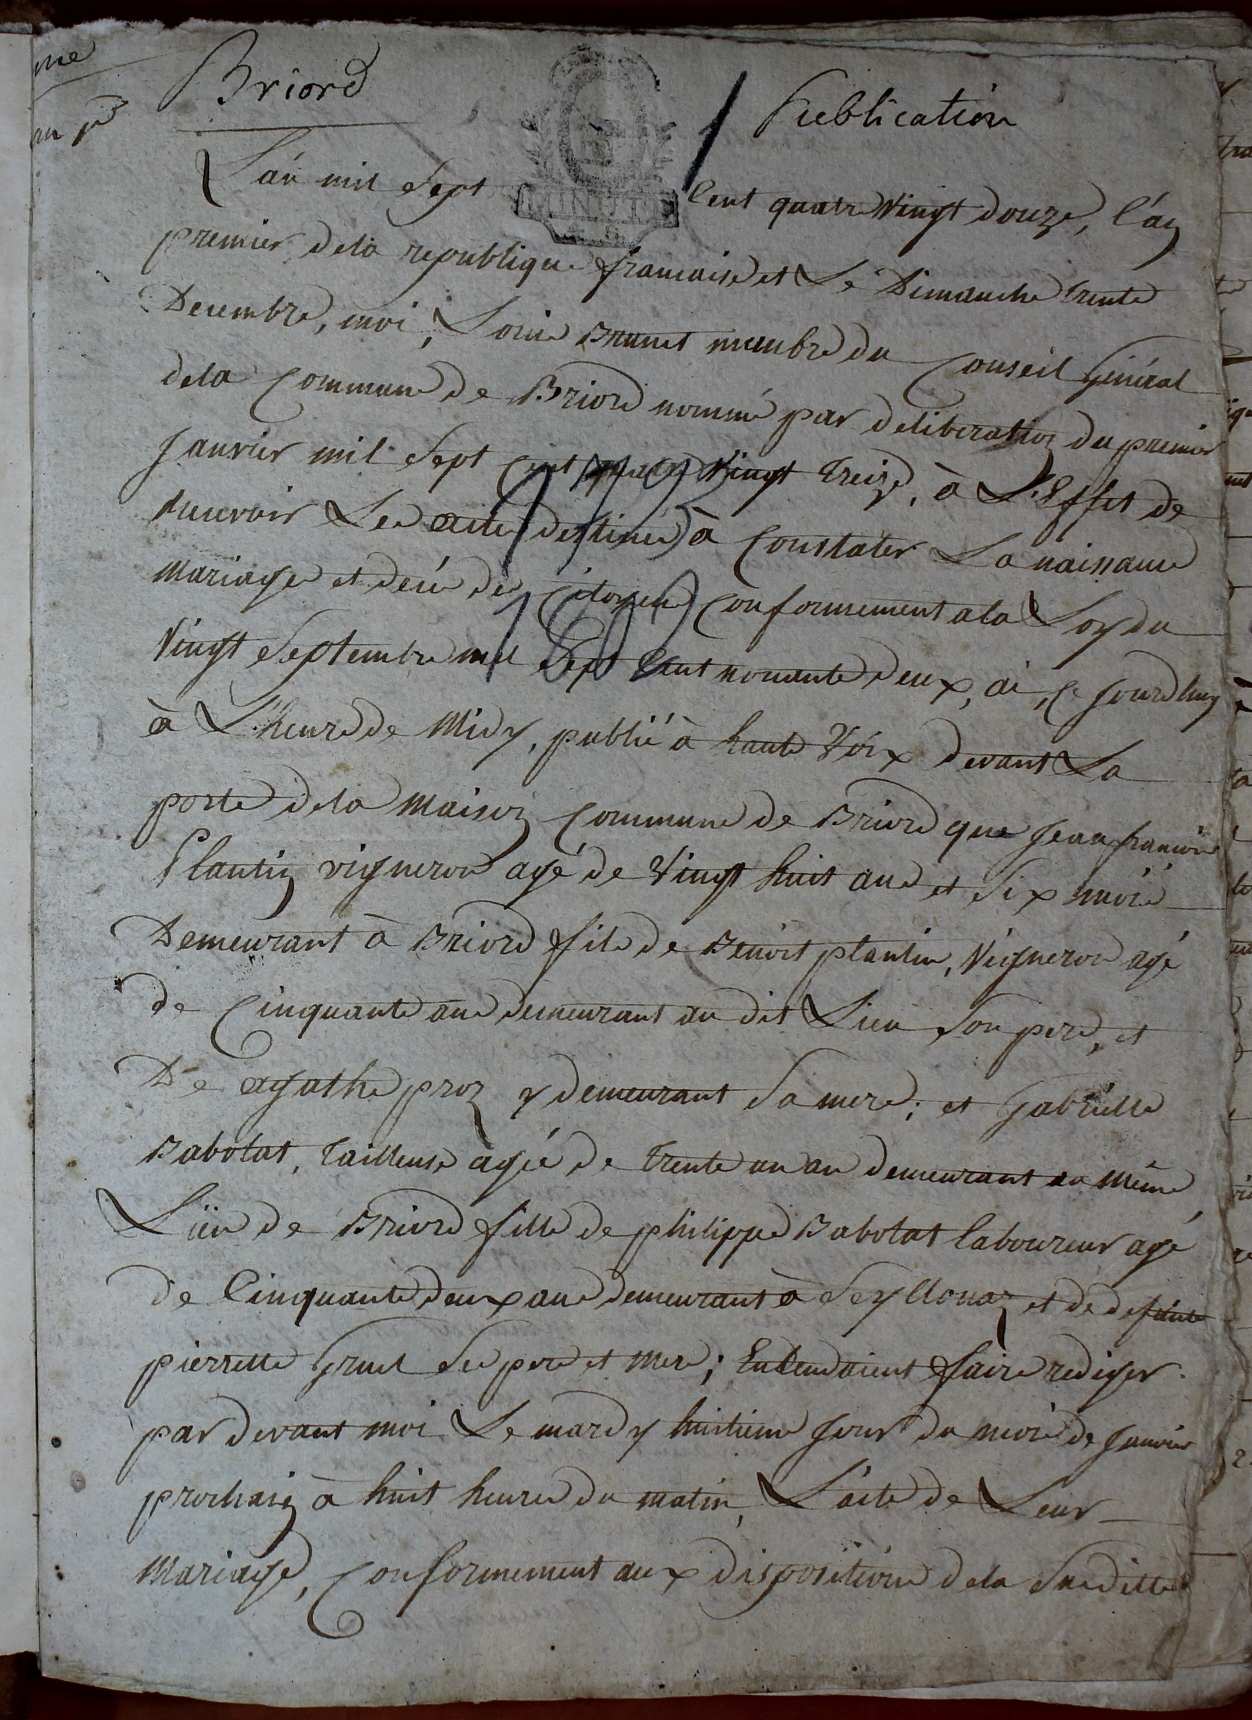 Briord
Publication
L'an mil Sept Cent quatre Vingt douze, l'an
premier dela republique francaise et Le Dimanche trente
Decembre, moi, Louis Brunet membre du Conseil Général
dela Commune de Briord nommé par deliberation du premier
Janvier mil Sept Cent quatre Vingt treize, à L'Effet de
recevoir Les actes destinés à Constater La naissance
mariage et decès des Citoyens Conformement a la Loy du
Vingt Septembre mil Sept Cent nonante deux, ai, Ce Jourdhuy
à L'heure de Midy, publié à haute Voix devant La
porte dela Maison Commune de Briord que Jean francois
Plantin vigneron agé de Vingt huit ans et Six mois
Demeurant à Briord fils de Benoit plantin, Vigneron agé
de Cinquante ans demeurant au dit Lieu Son pere, et
De agathe proz y demeurant Sa mere; et Gabrielle
Babolat, tailleuse agée de trente un an demeurant au même
Lieu de Briord fille de philippe Babolat laboureur agé
de Cinquante deux ans demeurant à Seyllonaz et de defunte
pierrette Gruel Ses pere et mere; Entendoient faire rediger
par devant moi Le mardy huitieme Jour du mois de Janvier
prochain à huit heures du matin, L'acte de Leur
Mariage, Conformement aux dispositions dela Susditte
MINUTE
1793
1802